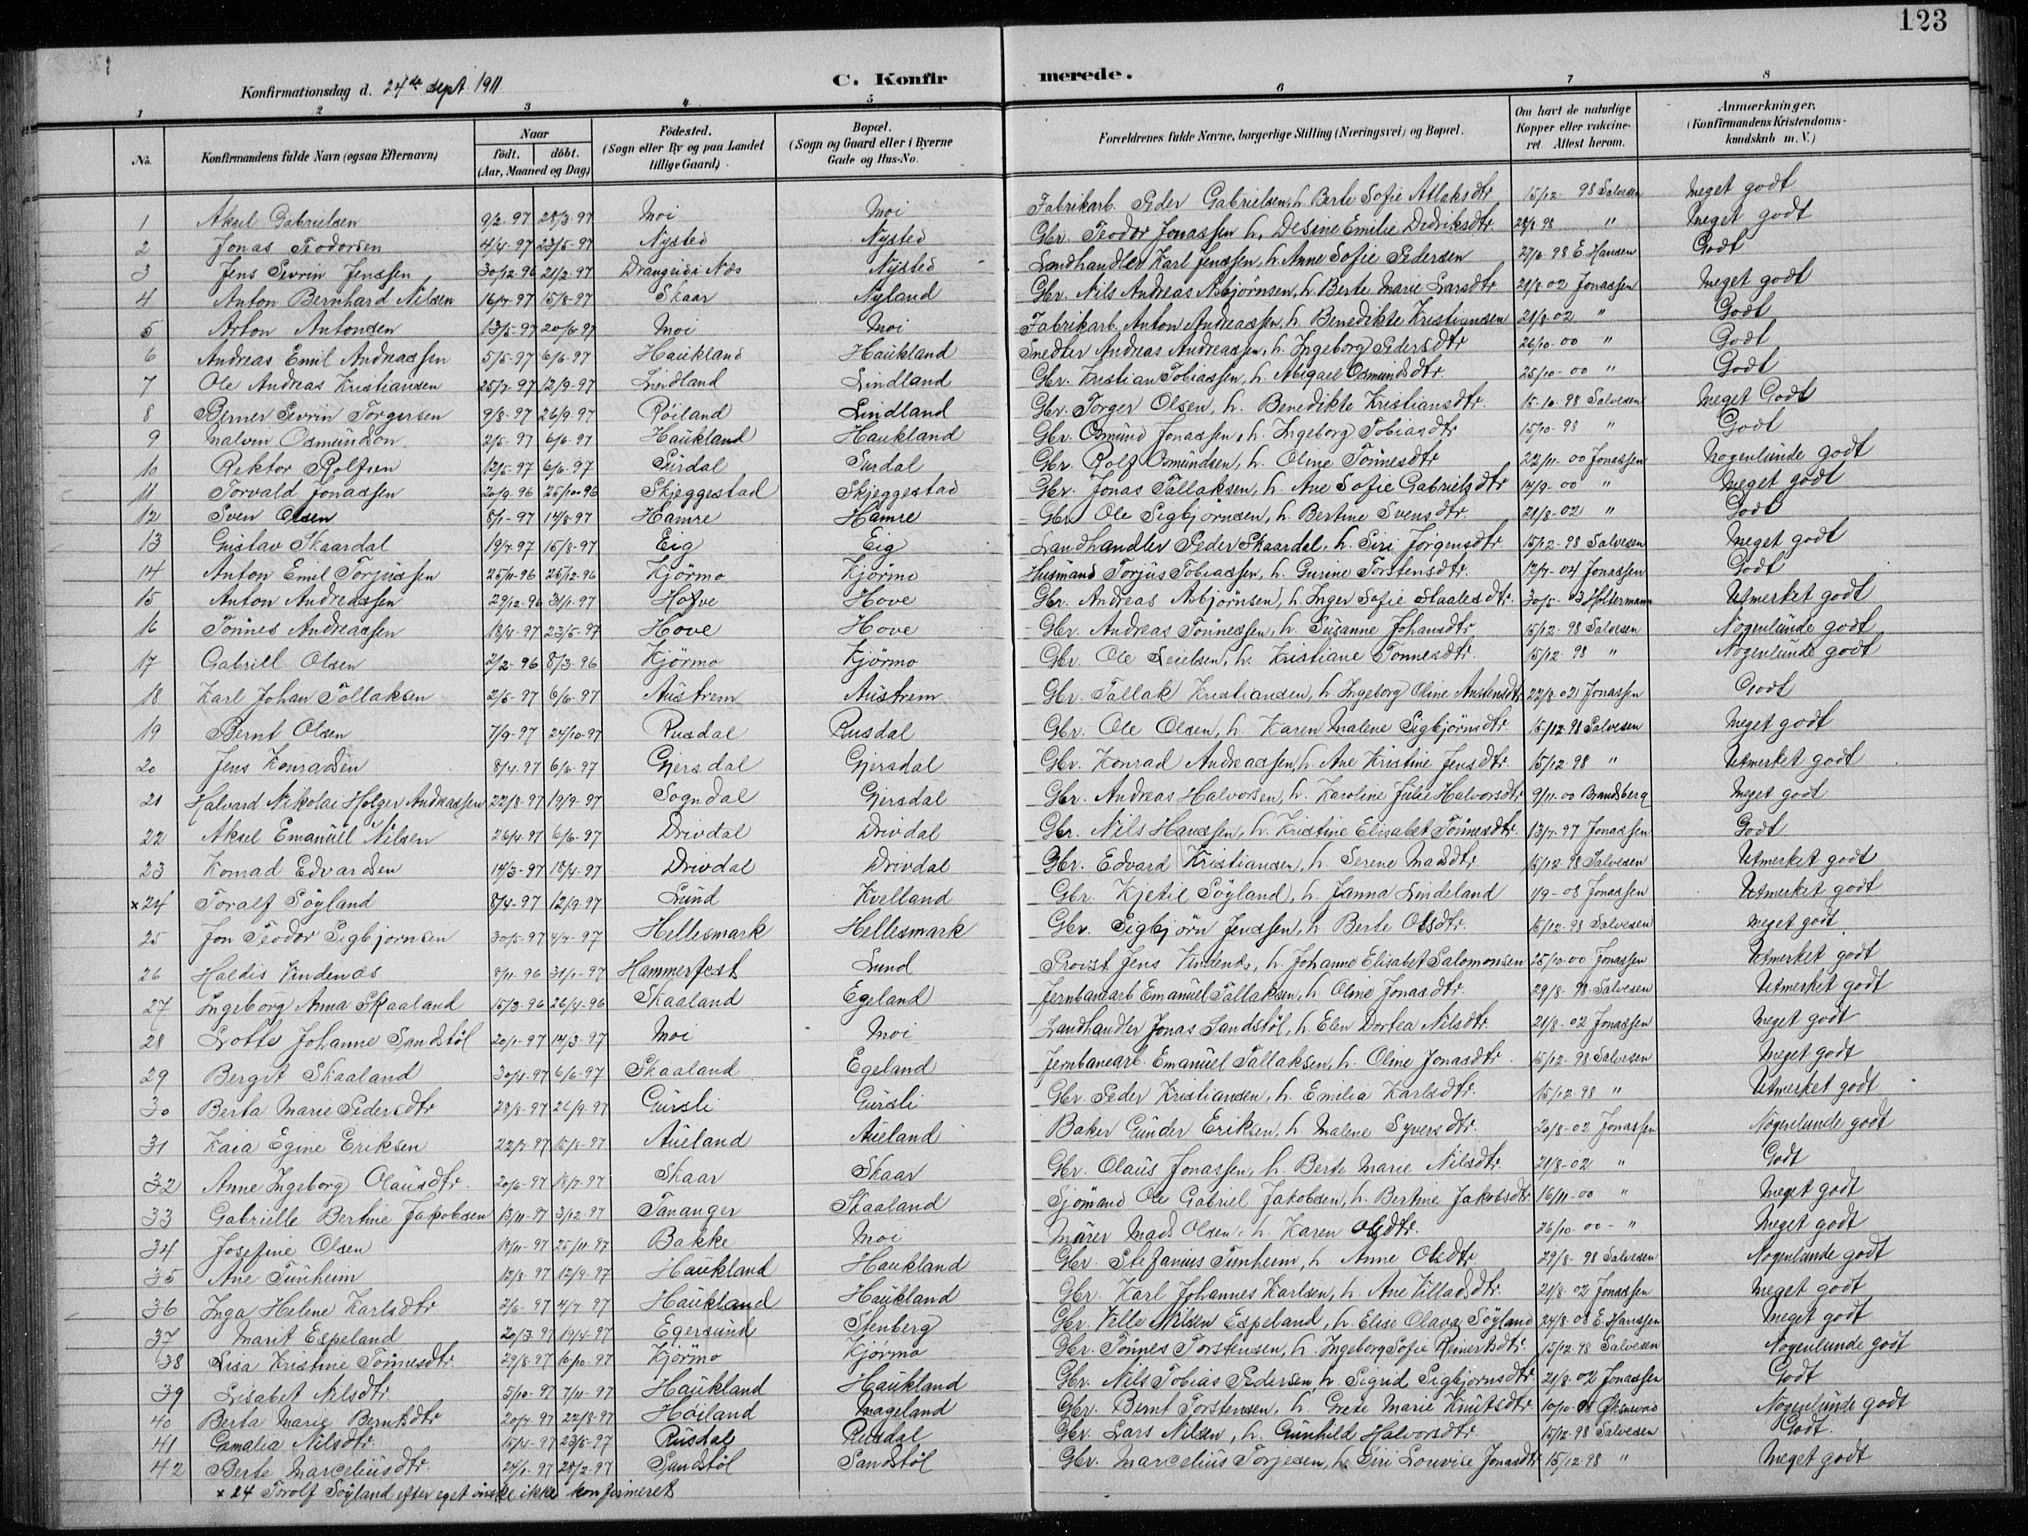 123
Konfirmationsdag d. 24de sept. 1911
C. Konfirmerede.
1 2 3 4 5 6 7 8
No. Konfirmandens fulde Navn (ogsaa Efternavn) Naar født. døbt. (Aar, Maaned og Dag) Fødested. (Sogn eller By og paa Landet tillige Gaard) Bopæl. (Sogn og Gaard eller i Byerne Gade og Hus-No. Forældrenes fulde Navne, borgerlige Stilling (Næringsvei) og Bopæl. Om havt de naturlige Kopper eller vakcineret Attest herom. Anmærkninger. (Konfirmandens Kristendomskundskab m. V.)
1 Aksel Gabrielsen 9/2-97 28/3-97 Moi Moi Fabrikarb. Peder Gabrielsen, h. Berte Sofie Atlaksdtr 15/12 98 Salvesen Meget godt
2 Jonas Teodorsen 4/4-97 23/5-97 Nysted Nysted Gbr. Teodor Jonassen h. Desine Emilie Dedriksdtr 28/8 98 " Meget godt
3 Jens Sevrin Jenssen 30/12 96 21/2-97 Drangsdøi Næs Nysted Landhandler Karl Jenssen, h. Anne Sofie Pedersen 27/6-98 E. Hansen Godt
4 Anton Bernhard Nilsen 16/7-97 15/8-97 Skaar Nyland Gbr. Nils Andreas Asbjørnsen, h. Berte Marie Larsdtr 21/8 02 Jonassen Meget godt
5 Anton Antonsen 13/5-97 20/6-97 Moi Moi Fabrikarb. Anton Andreassen, h. Benedikte Kristiansen 21/8-02 " Godt
6 Andreas Emil Andreassen 5/5-97 6/6-97 Haukland Haukland Snedker Andreas Andreassen, h. Ingeborg Pedersdtr 26/10-00 " Godt
7 Ole Andreas Kristiansen 25/7-97 12/9-97 Lindland Lindland Gbr. Kristian Tobiassen, h. Abigael Osmundsdtr. 25/10-00 " Godt
8 Berner Sevrin Torgersen 9/8-97 26/9-97 Røiland Lindland Gbr. Torger Olsen, h. Benedikte Kristiansdtr. 15-10-98 Salvesen Meget Godt
9 Malvin Osmundson 2/5-97 6/6-97 Haukland Haukland Gbr. Osmund Jonassen, h. Ingeborg Tobiasdtr 15/10-98 " Godt
10 Rektor Rolfsen 12/5-97 6/6-97 Surdal Surdal Gbr. Rolf Osmundsen, h. Oline Tønnesdtr 22/11-00 Jonassen Nogenlunde godt
11 Torvald Jonassen 20/9-96 25/10-96 Skjeggestad Skjeggestad Gbr. Jonas Tallaksen, h. Ane Sofie Gabrielsdtr 14/9-00 " Meget godt
12 Sven Olsen 8/1-97 14/8-97 Hamre Hamre Gbr. Ole Sigbjørnsen, h. Bertine Svensdtr. 21/8-02 " Godt
13 Gustav Skaardal 19/7-97 15/8-97 Eig Eig Landhandler Peder Skaardal, h. Siri Jørgensdtr. 15/12-98 Salvesen Meget godt
14 Anton Emil Torjussen 25/11-96 26/12-96 Kjørmo Kjørmo Husmand Torjus Tobiassen, h. Gurine Torstensdtr. 12/7-04 Jonassen Godt
15 Anton Andreassen 29/12-96 31/1-97 Hove Hove Gbr. Andreas Asbjørnsen, h. Inger Sofie Staalesdtr. 30/5-3 Holtermann Utmerket godt
16 Tønnes Andreassen 18/4-97 23/5-97 Hove Hove Gbr. Andreas Tønnessen, h. Susanne Johansdtr 15/12-98 Salvesen Nogenlunde godt
17 Gabriell Olsen 2/2-96 8/3-96 Kjørmo Kjørmo Gbr. Ole Leielsen, h. Kristiane Tønnesdtr. 15/12 98 " Nogenlunde godt
18 Karl Johan Tollaksen 2/5-97 6/6-97 Austrem Austrem Gbr. Tallak Kristiansen, h. Ingeborg Oline Austensdtr 22/8-02 Jonassen Godt
19 Bernt Olsen 7/9-97 24/10-97 Rusdal Rusdal Gbr. Ole Olsen, h. Karen Malene Sigbjørnsdtr 15/12-98 Salvesen Meget godt
20 Jens Konradsen 8/4-97 6/6-97 Gjersdal Gjersdal Gbr. Konrad Andreassen, h. Ane Kristine Jensdtr 15/12-98 " Utmerket godt
21 Halvard Nikolai Holger Andreassen 22/8-97 19/9-97 Sogndal Gjersdal Gbr. Andreas Halvorsen, h. Karoline Julie Halvorsdtr 9/11-00 Brandsberg Meget godt
22 Aksel Emanuell Nilsen 26/4-97 6/6-97 Drivdal Drivdal Gbr. Nils Hanssen, h. Kristine Elisabet Tønnesdtr. 13/7-97 Jonassen Godt
23 Konrad Edvardsen 14/3-97 18/4-97 Drivdal Drivdal Gbr. Edvard Kristiansen, h. Serene Madsdtr 15/12-98 Salvesen Utmerket godt
x 24 Toralf Søyland 8/4-97 12/9-97 Lund Kvelland Gbr. Kjetil Søyland, h. Janna Lindeland 1/9-08 Jonassen Utmerket godt
25 Jon Teodor Sigbjørnsen 30/5-97 4/7-97 Hellesmark Hellesmark Gbr. Sigbjørn Jenssen, h. Berte Olsdtr. 15/12-98 Salvesen Meget godt
26 Haldis Vindenæs 9/11 96 31/1-97 Hammerfest Lund Provst Jens Vindenæs, h. Johanne Elisabet Salomonsen 25/10-00 Jonassen Utmerket godt
27 Ingeborg Anna Skaaland 15/3-96 26/4-96 Skaaland Egeland Jernbanearb. Emanuel Tallaksen, h. Oline Jonasdtr 29/8-98 Salvesen Utmerket godt
28 Lotte Johanne Sandstøl 20/1-97 14/3-97 Moi Moi Landhandler Jonas Sandstøl, h. Elen Dortea Nilsdtr. 21/8-02 Jonassen Meget godt
29 Bergit Skaaland 30/4-97 6/6-97 Skaaland Egeland Jernbanearb. Emanuel Tallaksen, h. Oline Jonasdtr. 15/12-98 Salvesen Meget godt
30 Berta Marie Pedersdtr 28/8-97 26/9-97 Gursli Gursli Gbr. Peder Kristiansen, h. Emilia Karlsdtr. 15/12 98 " Utmerket godt
31 Kaia Egine Eriksen 22/7-97 15/8-97 Aueland Aueland Baker Gunder Eriksen, h. Malene Syversdtr. 20/8-02 Jonassen Nogenlunde godt
32 Anne Ingeborg Olausdtr. 20/6-97 18/7-97 Skaar Skaar Gbr. Olaus Jonassen, h. Berte Marie Nilsdtr. 21/8-02 " Godt
33 Gabrielle Bertine Jakobsen 13/11-97 3/12-97 Tananger Skaaland Sjømand Ole Gabriel Jakobsen, h. Bertine Jakobsdtr 16/11-00 " Meget godt
34 Josefine Olsen 10/11-97 25/11-97 Bakke Moi Murer Mads Olsen, h. Karen Olsdtr. 26/10-00-" Meget godt
35 Ane Tunheim 12/8-97 12/9-97 Haukland Haukland Gbr. Stefanius Tunheim, h. Anne Olsdtr. 29/8-98 Salvesen Nogenlunde godt
36 Inga Helene Karlsdtr 2/6-97 4/7-97 Haukland Haukland Gbr. Karl Johannes Karlsen, h. Ane Villadsdtr. 21/8-02 Jonassen Meget godt
37 Marit Espeland 20/3-97 19/4-97 Egersund Stenberg Gbr. Ville Nilsen Espeland, h. Elise Olava Søyland 24/8-08 E. Hanssen Meget godt
38 Lisa Kristine Tønnesdtr 29/8-97 10/10-97 Kjørmo Kjørmo Gbr. Tønnes Torstensen, h. Ingeborg Sofie Reinertsdtr. 15/12 98 Salvesen Nogenlunde godt
39 Lisabet Nilsdtr. 5/10-97 7/11-97 Haukland Haukland Gbr. Nils Tobias Pedersen h. Sigrid Sigbjørnsdtr 21/8-02 Jonassen Godt
40 Berta Marie Berntsdtr 20/7-97 22/8-97 Høiland Mageland Gbr. Bernt Torstensen, h. Grete Marie Knutsdtr Nogenlunde godt
41 Gamalia Nilsdtr. 15/4-97 23/5-97 Rusdal Rusdal Gbr. Lars Nilsen, h. Gunhild Halvorsdtr 15/12-98 Salvesen Godt.
42 Berte Marceliusdtr. 24/1-97 28/2-97 Sandstøl Sandstøl Gbr. Marcelius Torjesen, h. Siri Lovise Jonasdtr 15/12 98 " Meget godt
x 24 Torolf Søyland efter eget ønske ikke konfirmeret